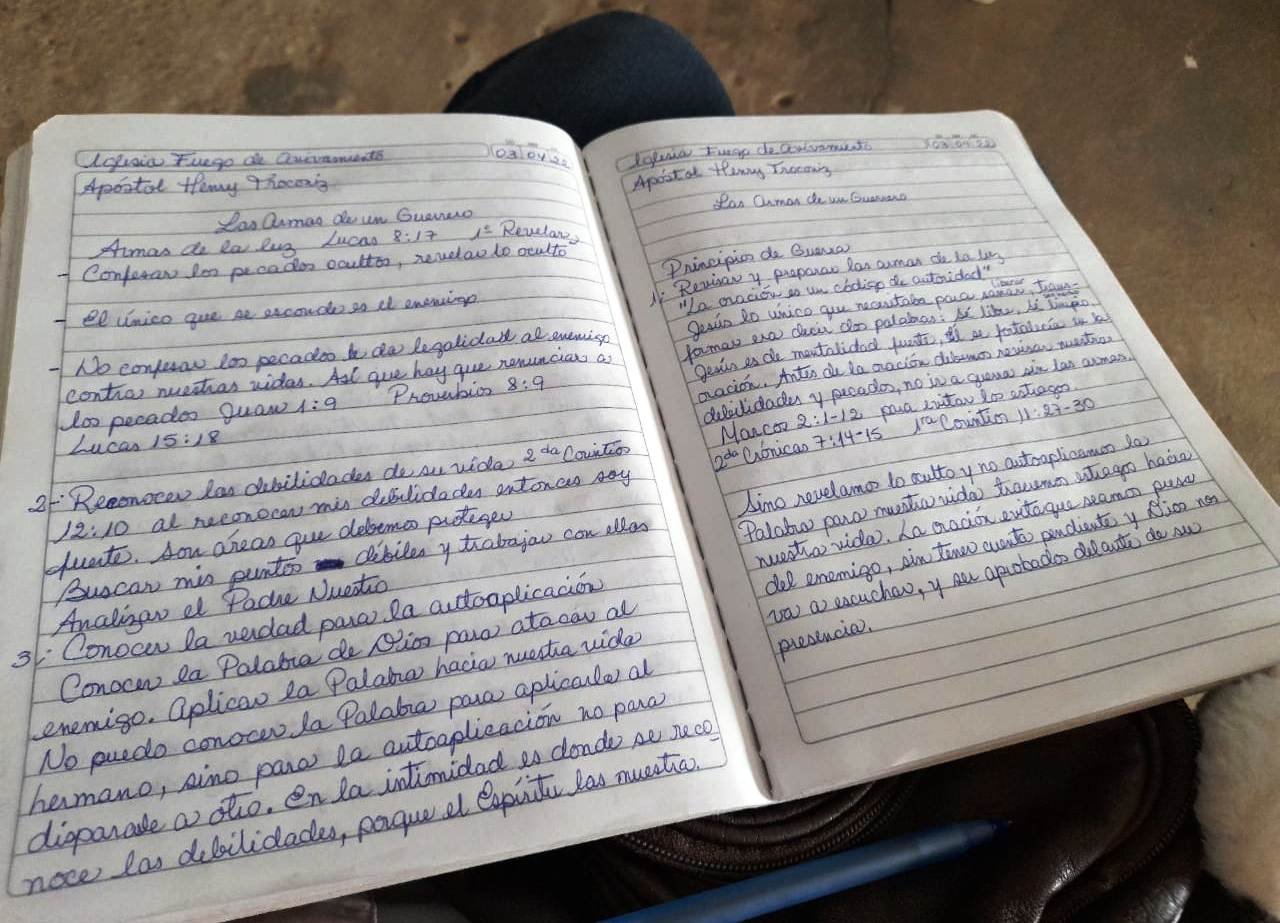 Iglesia Fuego de Avivamiento 03 04 22
Apóstol Henry Trocoriz
Las Armas de un Guerrero
Armas de la luz Lucas 8:17 1º Revelar
- Confesar los pecados ocultos, revelar lo oculto
- El único que se esconde es el enemigo
- No confesar los pecados le da legalidad al enemigo
contra nuestras vidas. Así que hay que renunciar a
los pecados Juan 1:9 Proverbios 8:9
Lucas 15:18
2- Reconocer las debilidades de su vida 2da Corintios
12:10 al reconocer mis debilidades entonces soy
fuerte. Son áreas que debemos proteger
Buscar mis puntos débiles y trabajar con ellas
Analizar el Padre Nuestro
3- Conocer la verdad para la autoaplicación
Conocer la Palabra de Dios para atacar al
enemigo. Aplicar la Palabra hacia nuestra vida
No puedo conocer la Palabra para aplicarle al
hermano, sino para la autoaplicación no para
dispararle a otro. En la intimidad es donde se reco-
noce las debilidades, porque el Espíritu las muestra.
Iglesia Fuego de Avivamiento 03 04 22
Apóstol Henry Trocoriz
Las Armas de un Guerrero
Principios de Guerra
1- Revisar y preparar las armas de la luz
"La oración es un código de autoridad"
Jesús lo único que necesitaba para sanar, liberar, trans-
formar era decir dos palabras: Sé libre, Sé limpio
Jesús es de mentalidad fuerte, él se fortalecía en la
oración. Antes de la oración debemos revisar nuestras
debilidades y pecados, no ir a guerra sin las armas
Marcos 2:1-12 para evitar los estragos
2da Crónicas 7:14-15 1ra Corintios 11:27-30
Sino revelamos lo oculto y no autoaplicamos la
Palabra para nuestra vida traemos estragos hacia
nuestra vida. La oración evita que seamos presa
del enemigo, sin tener cuenta pendiente y Dios nos
va a escuchar, y ser aprobados delante de su
presencia.